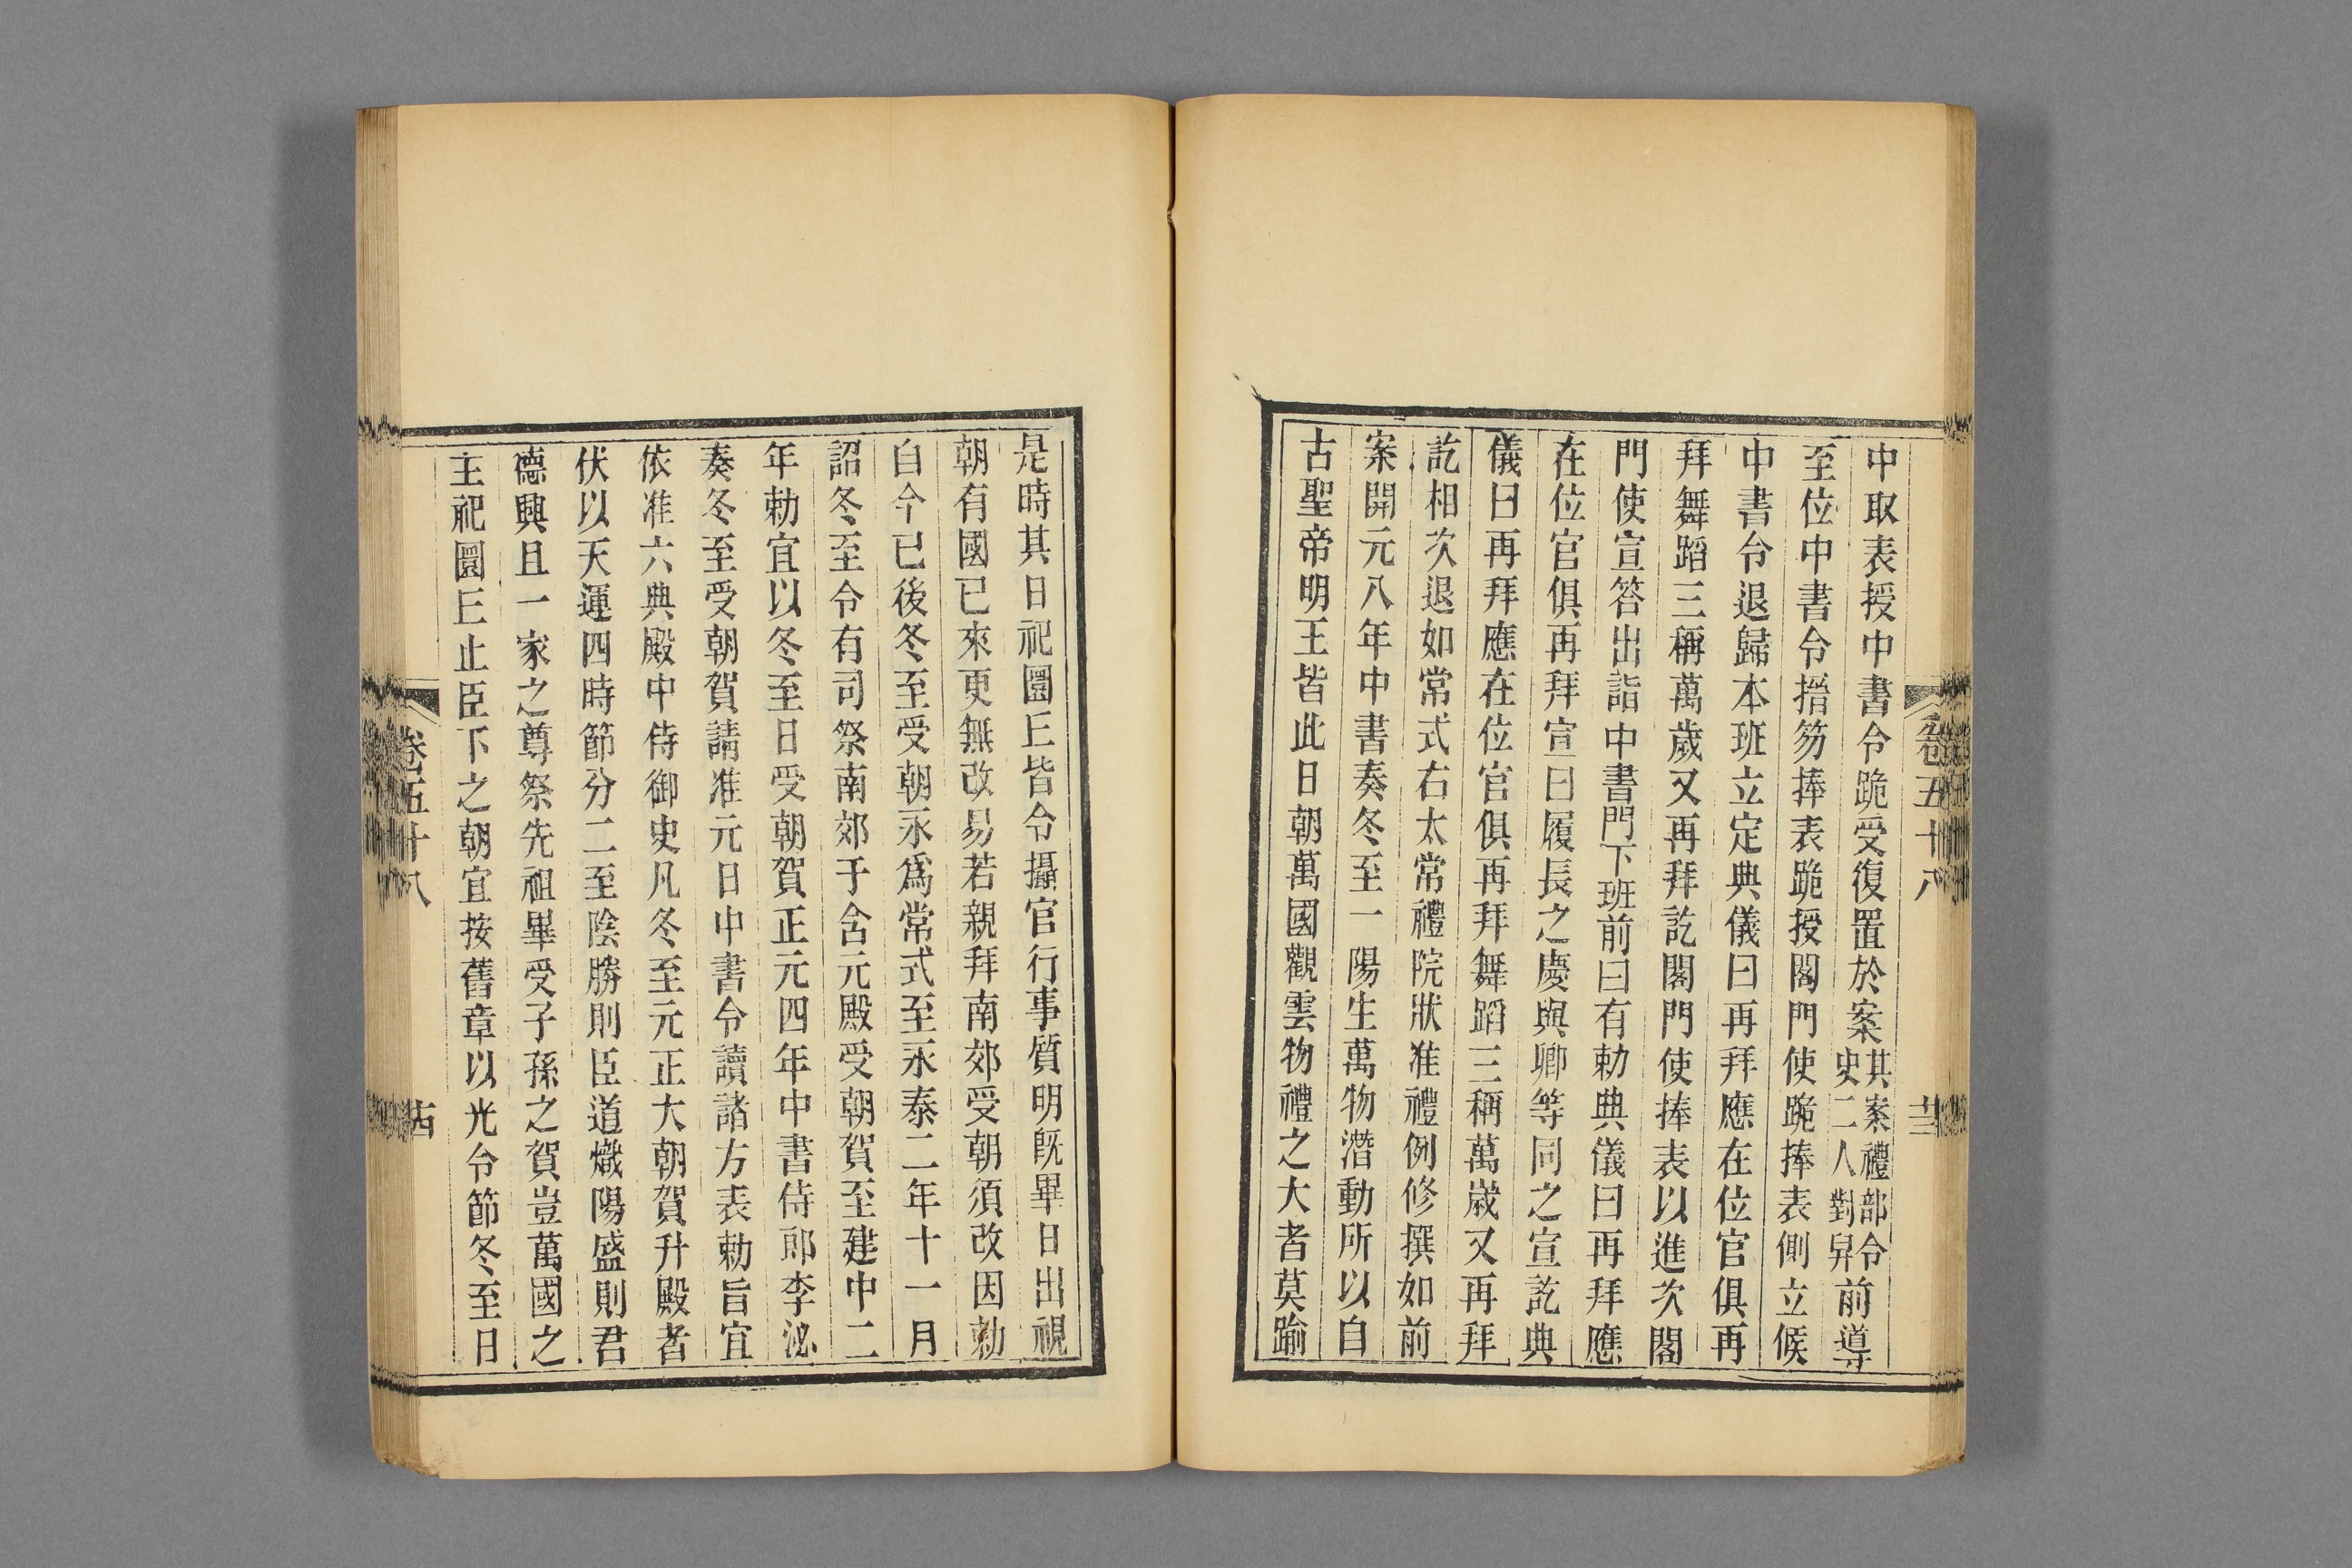 中取表授中書令跪受復置於案其案禮部令史二人對舁前導
至位中書令搢笏捧表跪授閣門使跪捧表側立候
中書令退歸本班立定典儀曰再拜應在位官俱再
拜舞蹈三稱萬歲又再拜訖閣門使捧表以進次閣
門使宣答出詣中書門下班前曰有勅典儀曰再拜應
在位官俱再拜宣曰履長之慶與卿等同之宣訖典
儀曰再拜應在位官俱再拜舞蹈三稱萬歲又再拜
訖相次退如常式右太常禮院狀准禮例修撰如前
案開元八年中書奏冬至一陽生萬物潛動所以自
古聖帝明王皆此日朝萬國觀雲物禮之大者莫踰
卷五十八
十三
是時其日祀圜丘皆令攝官行事質明既畢日出視
朝有國已來更無改易若親拜南郊受朝須改因勅
自今已後冬至受朝永爲常式至永泰二年十一月
詔冬至令有司祭南郊于含元殿受朝賀至建中二
年勅宜以冬至日受朝賀正元四年中書侍郎李泌
奏冬至受朝賀請准元日中書令讀諸方表勅旨宜
依准六典殿中侍御史凡冬至元正大朝賀升殿者
伏以天運四時節分二至陰勝則臣道熾陽盛則君
德興且一家之尊祭先祖畢受子孫之賀豈萬國之
主祀圜丘止臣下之朝宜按舊章以光令節冬至日
卷五十八
十四